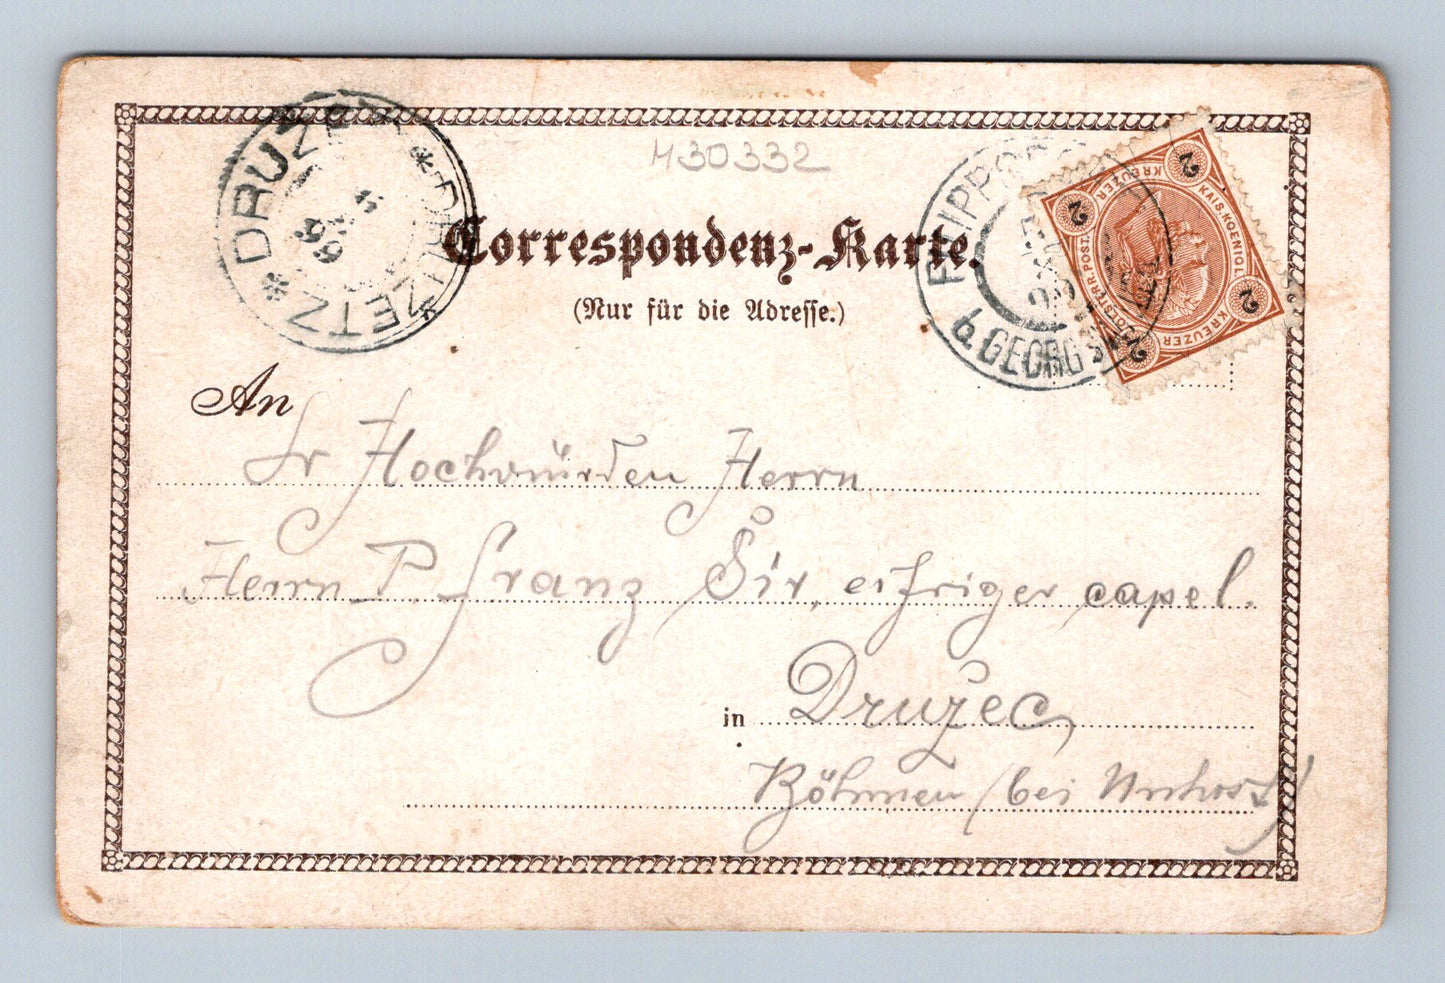 M30332
DRUZETZ * DRUŽEC *
99
FILIPPSDORF
b. GEORGSW
99
2 KREUZER 2
KAIS. KOENIGL. OESTERR. POST.
2 KREUZER 2
Correspondenz-Karte.
(Nur für die Adresse.)
An
Sr Hochwürden Herrn
Herrn P. Franz Šír, eifriger capel.
in Družec
Böhmen (bei Unhošt)